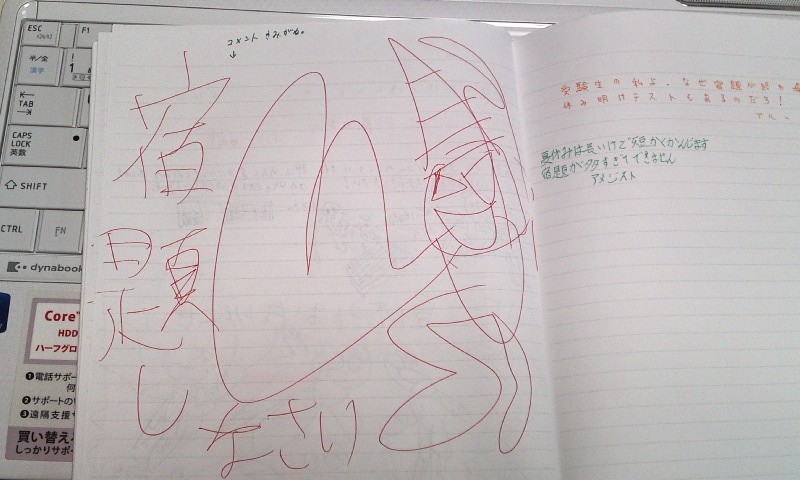 ESC
F1
半/全
漢字
1
TAB
CAPS
LOCK
英数
SHIFT
CTRL
FN
dynabook
Core
HDD
ハーフグロ
❶電話サポー
何
❷サポートの
❸遠隔支援サ
買い替え
しっかりサポ
コメント
↓
宿題し
なさい
受験生の私よ、なぜ宿題が終わ
休み明けテストもあるのだろ!
夏休みは長いけど短かくかんじます
宿題が多すぎてできません
アメジスト